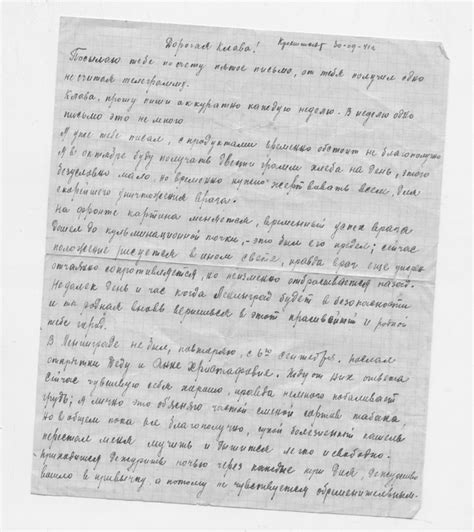 Дорогая Клава! Кронштадт 30-09-41г
Посылаю тебе по счету пятое письмо, от тебя получил одно
не считая телеграмму.
Клава, прошу пиши аккуратно каждую неделю. В неделю одно
письмо это не много
Я уже тебе писал, с продуктами временно обстоит не благополучно
Я в октябре буду получать двести грамм хлеба на день, этого
безусловно мало, но временно нужно жертвовать всем, для
скорейшего уничтожения врага.
На фронте картина меняется, временный успех врага
дошел до кульминационной точки, - это был его предел; сейчас
положение рисуется в ином свете, правда враг еще
отчаянно сопротивляется, но неизменно отбрасывается назад.
Недалек день и час когда Ленинград будет в безопасности
и ты родная вновь вернешься в этот красивейший и родной
тебе город.
В Ленинграде не был, повторяю, с 6го сентября. Послал
открытки Деду и Анне Христофоровне. Жду от них ответа
Сейчас чувствую себя хорошо, правда немного побаливает
грудь; я лично это объясняю частой сменой сортов табака,
Но в общем пока все благополучно, сухой болезненный кашель
перестал меня мучить и дышится легко и свободно.
Приходится дежурить ночью через каждые три дня,
вошло в привычку, а потому не чувствуется обременительным.